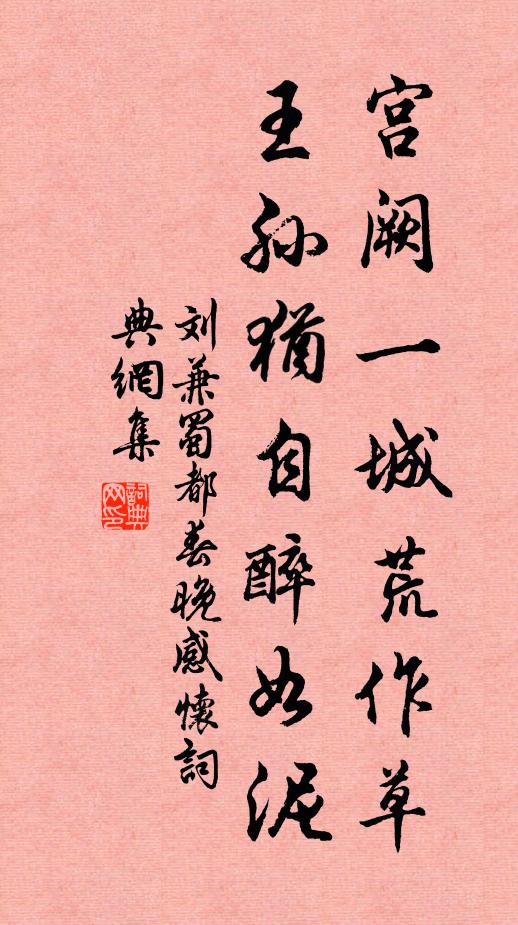 宫阙一城荒作草
王孙犹自醉如泥
刘兼蜀都春晚感懷詞
典網集
詞典
网印